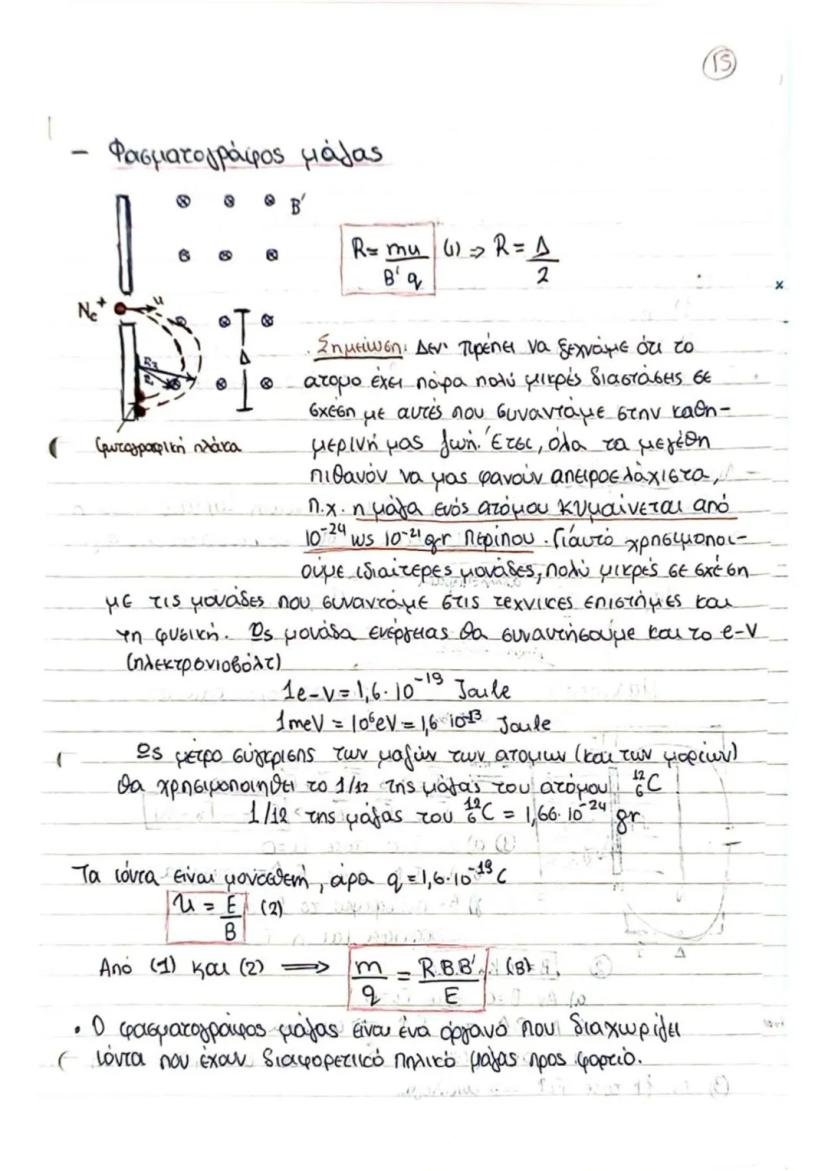 15
- Φασματογράφος μάζας
B'
R = mu / B' q (1) ⇒ R = Δ / 2
Ne+
u
Δ
R2
R1
Φωτογραφική πλάκα
Σημείωση: Δεν πρέπει να ξεχνάμε ότι το
ατομο έχει πάρα πολύ μικρές διαστάσεις σε
σχέση με αυτές που συναντάμε στην καθη-
μερινή μας ζωή. Έτσι, όλα τα μεγέθη
πιθανόν να μας φανούν απειροελάχιστα,
π.χ. η μάζα ενός ατόμου κυμαίνεται από
10⁻²⁴ ως 10⁻²¹ gr περίπου. Γι'αυτό χρησιμοποι-
ούμε ιδιαίτερες μονάδες, πολύ μικρές σε σχέση
με τις μονάδες που συναντάμε στις τεχνικές επιστήμες και
τη φυσική. Ως μονάδα ενέργειας θα συναντήσουμε και το e-V
(ηλεκτρονιοβόλτ)
1e-V = 1,6 · 10⁻¹⁹ Joule
1meV = 10⁶eV = 1,6 · 10⁻¹³ Joule
Ως μέτρο σύγκρισης των μαζών των ατομων (και των μορίων)
θα χρησιμοποιηθεί το 1/12 της μάζας του ατόμου ¹²₆C
1/12 της μάζας του ¹²₆C = 1,66 · 10⁻²⁴ gr
Τα ιόντα είναι μονοσθενή, άρα q = 1,6 · 10⁻¹⁹ C
u = E / B (2)
Από (1) και (2) ⟹ m / q = R.B.B' / E (3)
• Ο φασματογράφος μάζας είναι ένα όργανο που διαχωρίζει
ιόντα που έχουν διαφορετικό πηλίκο μάζας προς φορτίο.